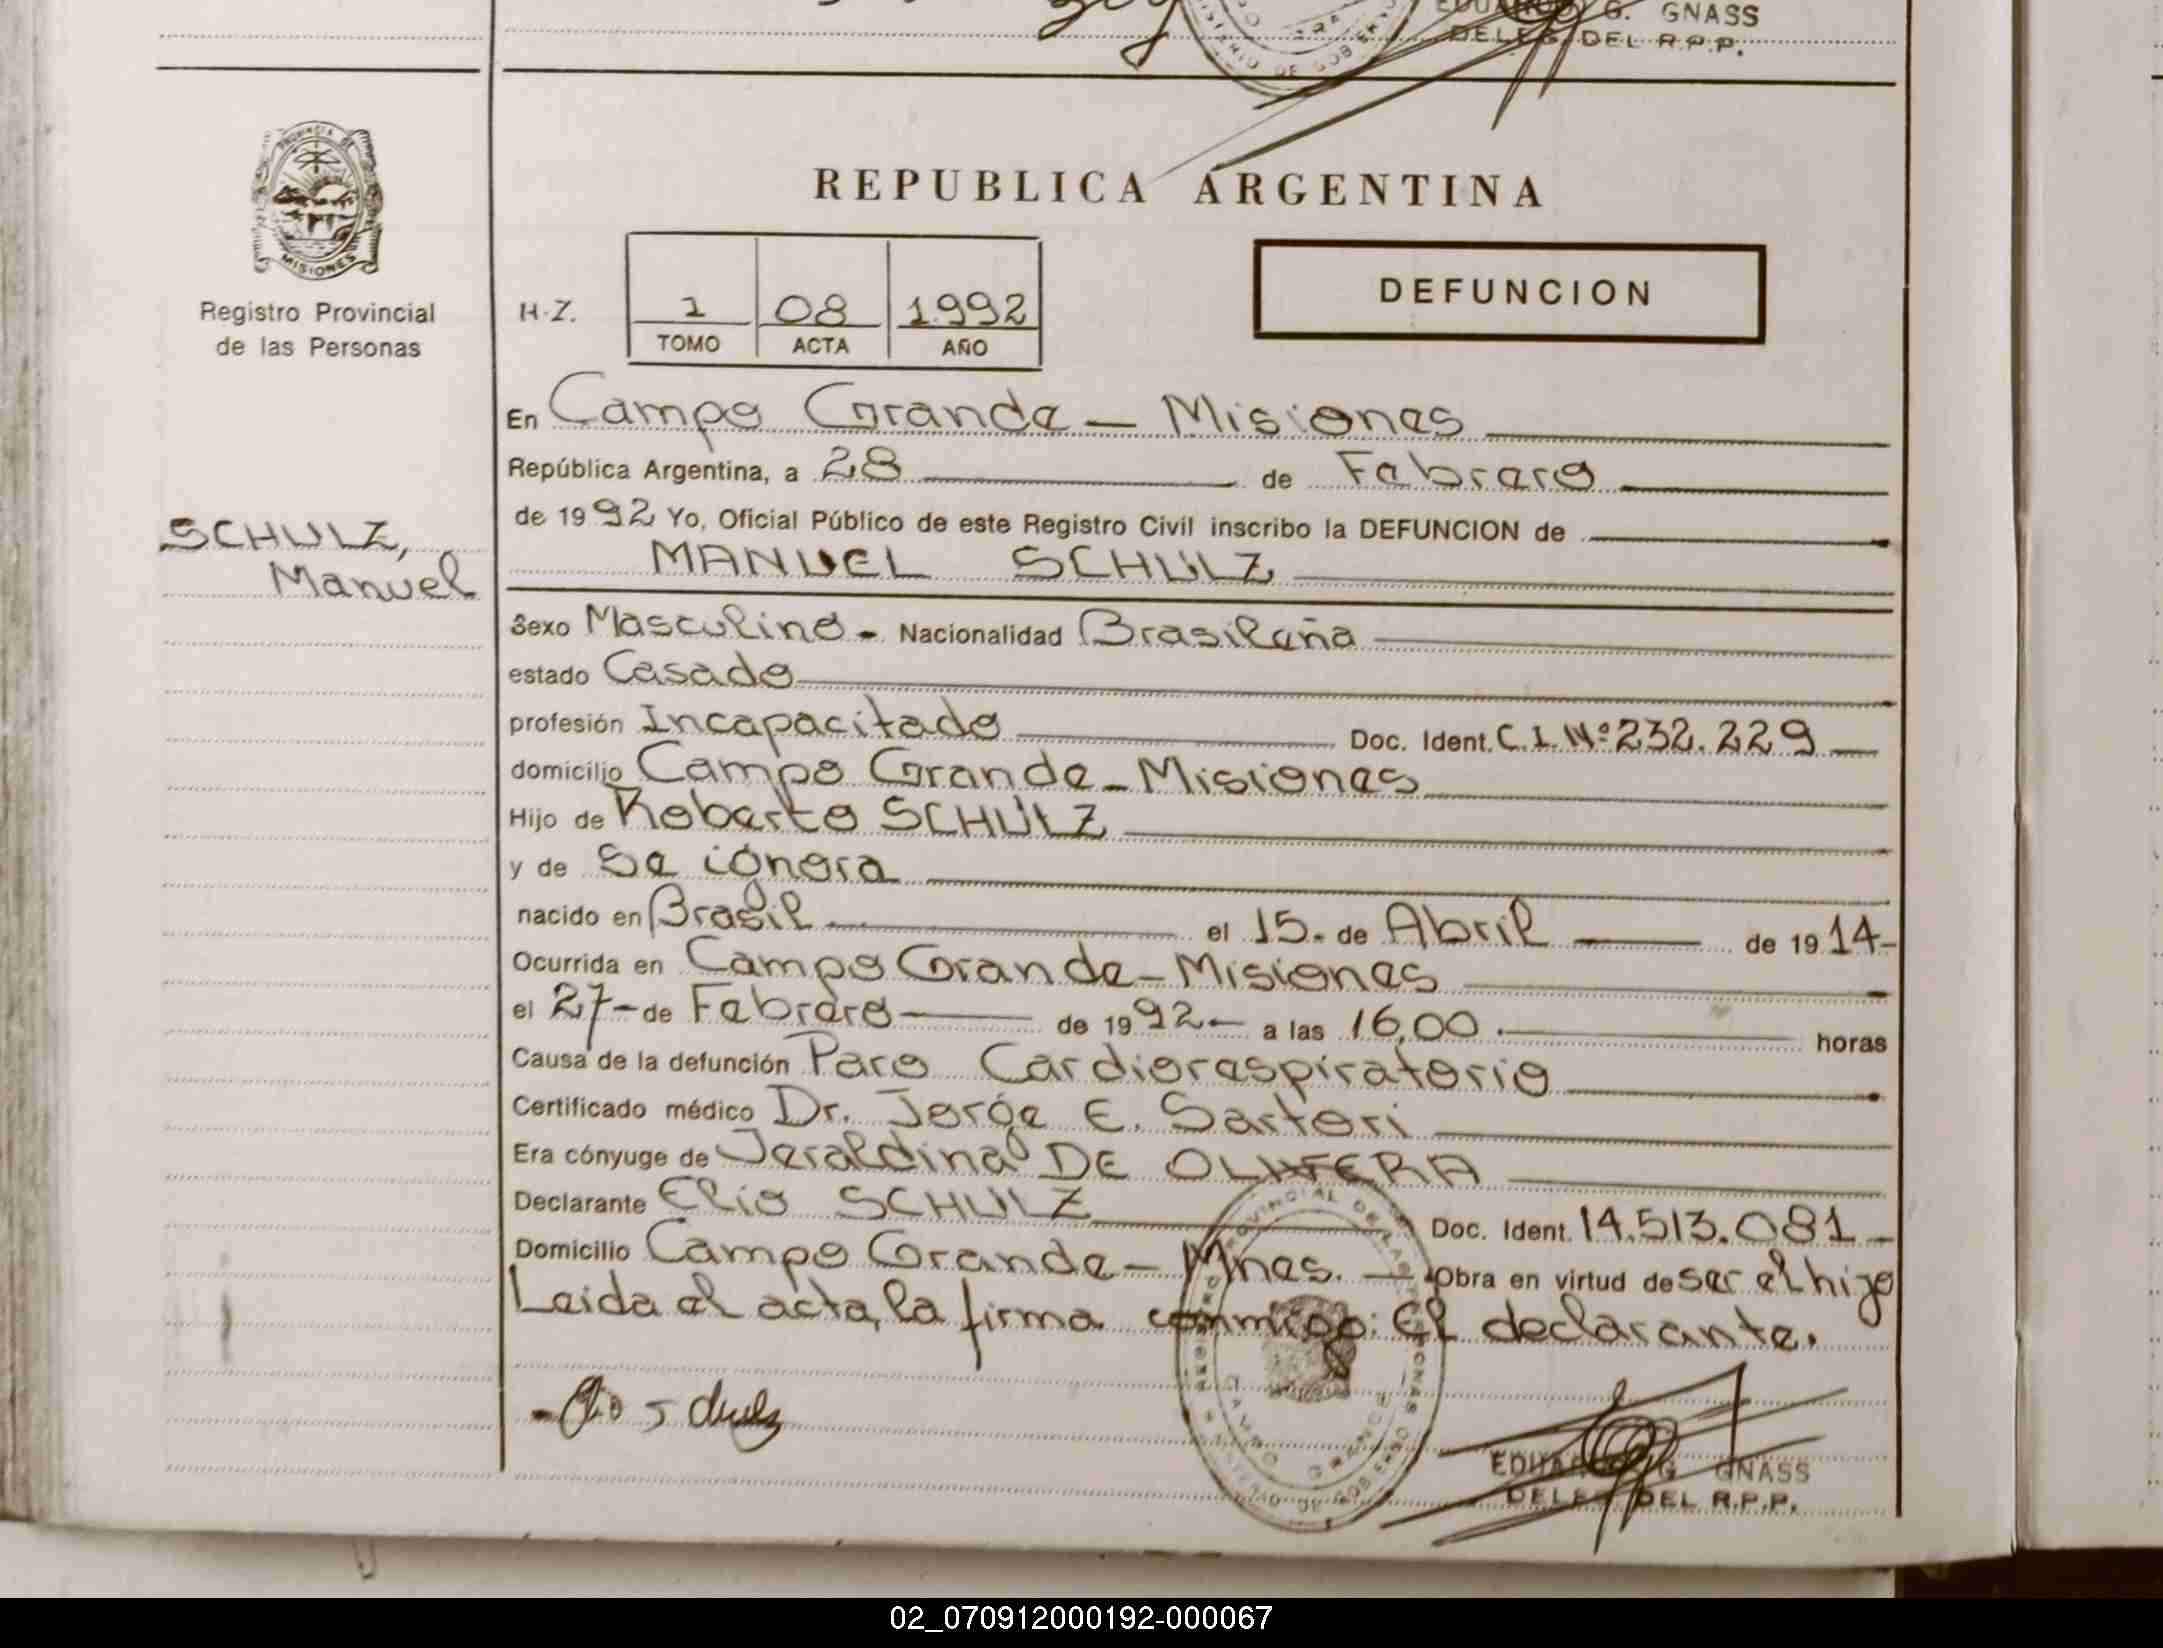 EDUARDO G. GNASS
DELEG. DEL R.P.P.
PROVINCIA DE
MISIONES
Registro Provincial
de las Personas
REPUBLICA ARGENTINA
H.Z.
1 08 1.992
TOMO ACTA AÑO
DEFUNCION
En Campo Grande - Misiones
República Argentina, a 28 de Febrero
de 1992 Yo, Oficial Público de este Registro Civil inscribo la DEFUNCION de
SCHULZ,
Manuel
MANUEL SCHULZ
Sexo Masculino - Nacionalidad Brasileña
estado Casado
profesión Incapacitado Doc. Ident. C.I. Nº 232.229
domicilio Campo Grande - Misiones
Hijo de Roberto SCHULZ
y de Se ignora
nacido en Brasil el 15. de Abril de 1914-
Ocurrida en Campo Grande - Misiones
el 27- de Febrero de 1992- a las 16,00. horas
Causa de la defunción Paro Cardiorespiratorio
Certificado médico Dr. Jorge E. Sartori
Era cónyuge de Jeraldina DE OLIVERA
Declarante Elio SCHULZ Doc. Ident. 14.513.081-
Domicilio Campo Grande - Mnes. - Obra en virtud de ser el hijo
Leida el acta, la firma conmigo: El declarante.
REGISTRO PROVINCIAL DE LAS PERSONAS
CAMPO GRANDE
MINISTERIO DE GOBIERNO
EDUARDO G. GNASS
DELEG. DEL R.P.P.
02_070912000192-000067